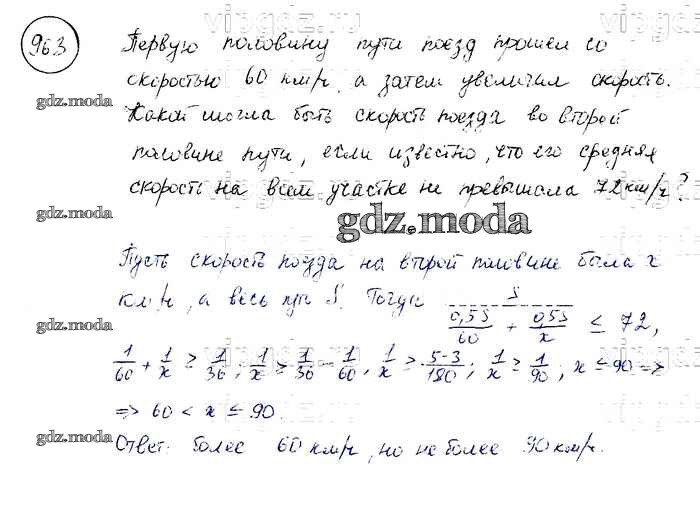 vipgdz.ru
963
Первую половину пути поезд прошел со
скоростью 60 км/ч, а затем увеличил скорость.
gdz.moda
Какой могла быть скорость поезда во второй
половине пути, если известно, что его средняя
скорость на всем участке не превышала 72 км/ч?
gdz.moda
gdz.moda
Пусть скорость поезда на второй половине была x
км/ч, а весь путь S. Тогда S / (0,5S/60 + 0,5S/x) ≤ 72,
gdz.moda
1/60 + 1/x ≥ 1/36; 1/x ≥ 1/36 − 1/60, 1/x ≥ (5-3)/180; 1/x ≥ 1/90; x ≤ 90 =>
=> 60 < x ≤ 90.
gdz.moda
Ответ: более 60 км/ч, но не более 90 км/ч.